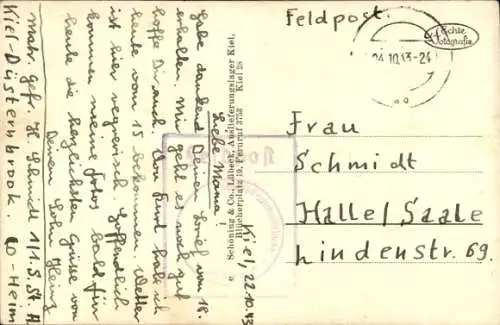 Feldpost.
Echte
Fotografie
24.10.43-24
Kiel, 22.10.43
Liebe Mama!
Habe dankend Deinen Brief vom 18.
erhalten. Mir geht es noch gut
hoffe Dir auch. Von habe ich
heute vom 15 bekommen. Wetter
ist hier regnerisch. Hoffentlich
kommen meine Fotos bald für
heute die herzlichsten Grüsse von
Deinem Sohn Heinz
Matr. gefr. H. Schmidt 1/1.S.St.A
Kiel-Düsternbrook. Co-Heim
Schöning & Co., Lübeck, Auslieferungslager Kiel,
Blücherplatz 19, Fernruf 3753 Kiel 28
Frau
Schmidt
Halle/Saale
Lindenstr. 69.